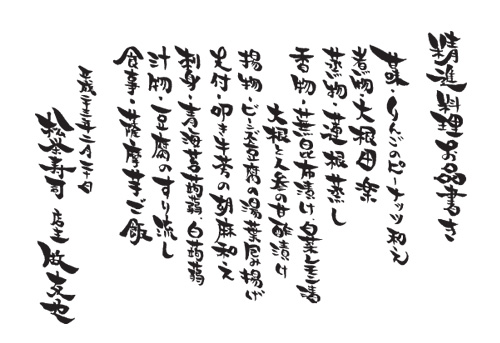 精進料理お品書き
甘味・りんごのピーナッツ和え
煮物・大根田楽
蒸し物・蓮根蒸し
香物・蕪昆布漬け・白菜レモン漬
大根と人参の甘酢漬け
揚物・ビーンズ豆腐の湯葉包み揚げ
先付・叩き牛蒡の胡麻和え
刺身・青海苔蒟蒻 白蒟蒻
汁物・豆腐のすり流し
食事・薩摩芋ご飯
平成二十三年二月二十日
松栄寿司 店主